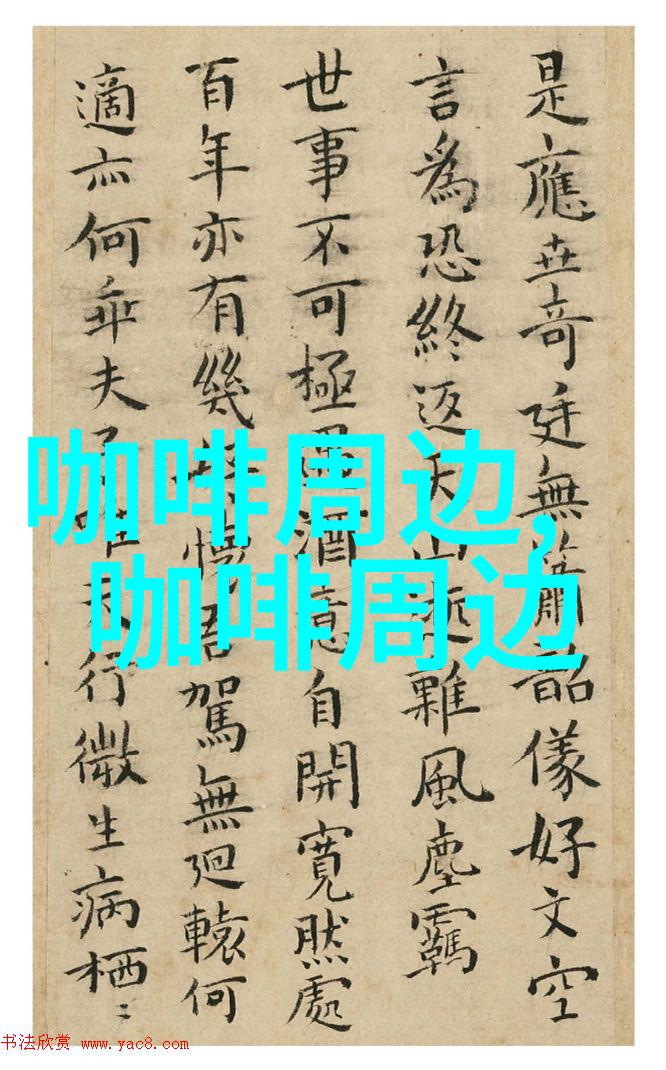 是應世奇廷無簫韶儀好文空
言爲恐終返山難風塵羈
世事不可極酒意自開寬然處
百年亦有幾懷吾駕無迴轅何
適亦何乖夫行微生病栖〻
咖啡周边,
咖啡周边
书法欣赏 www.yac8.com